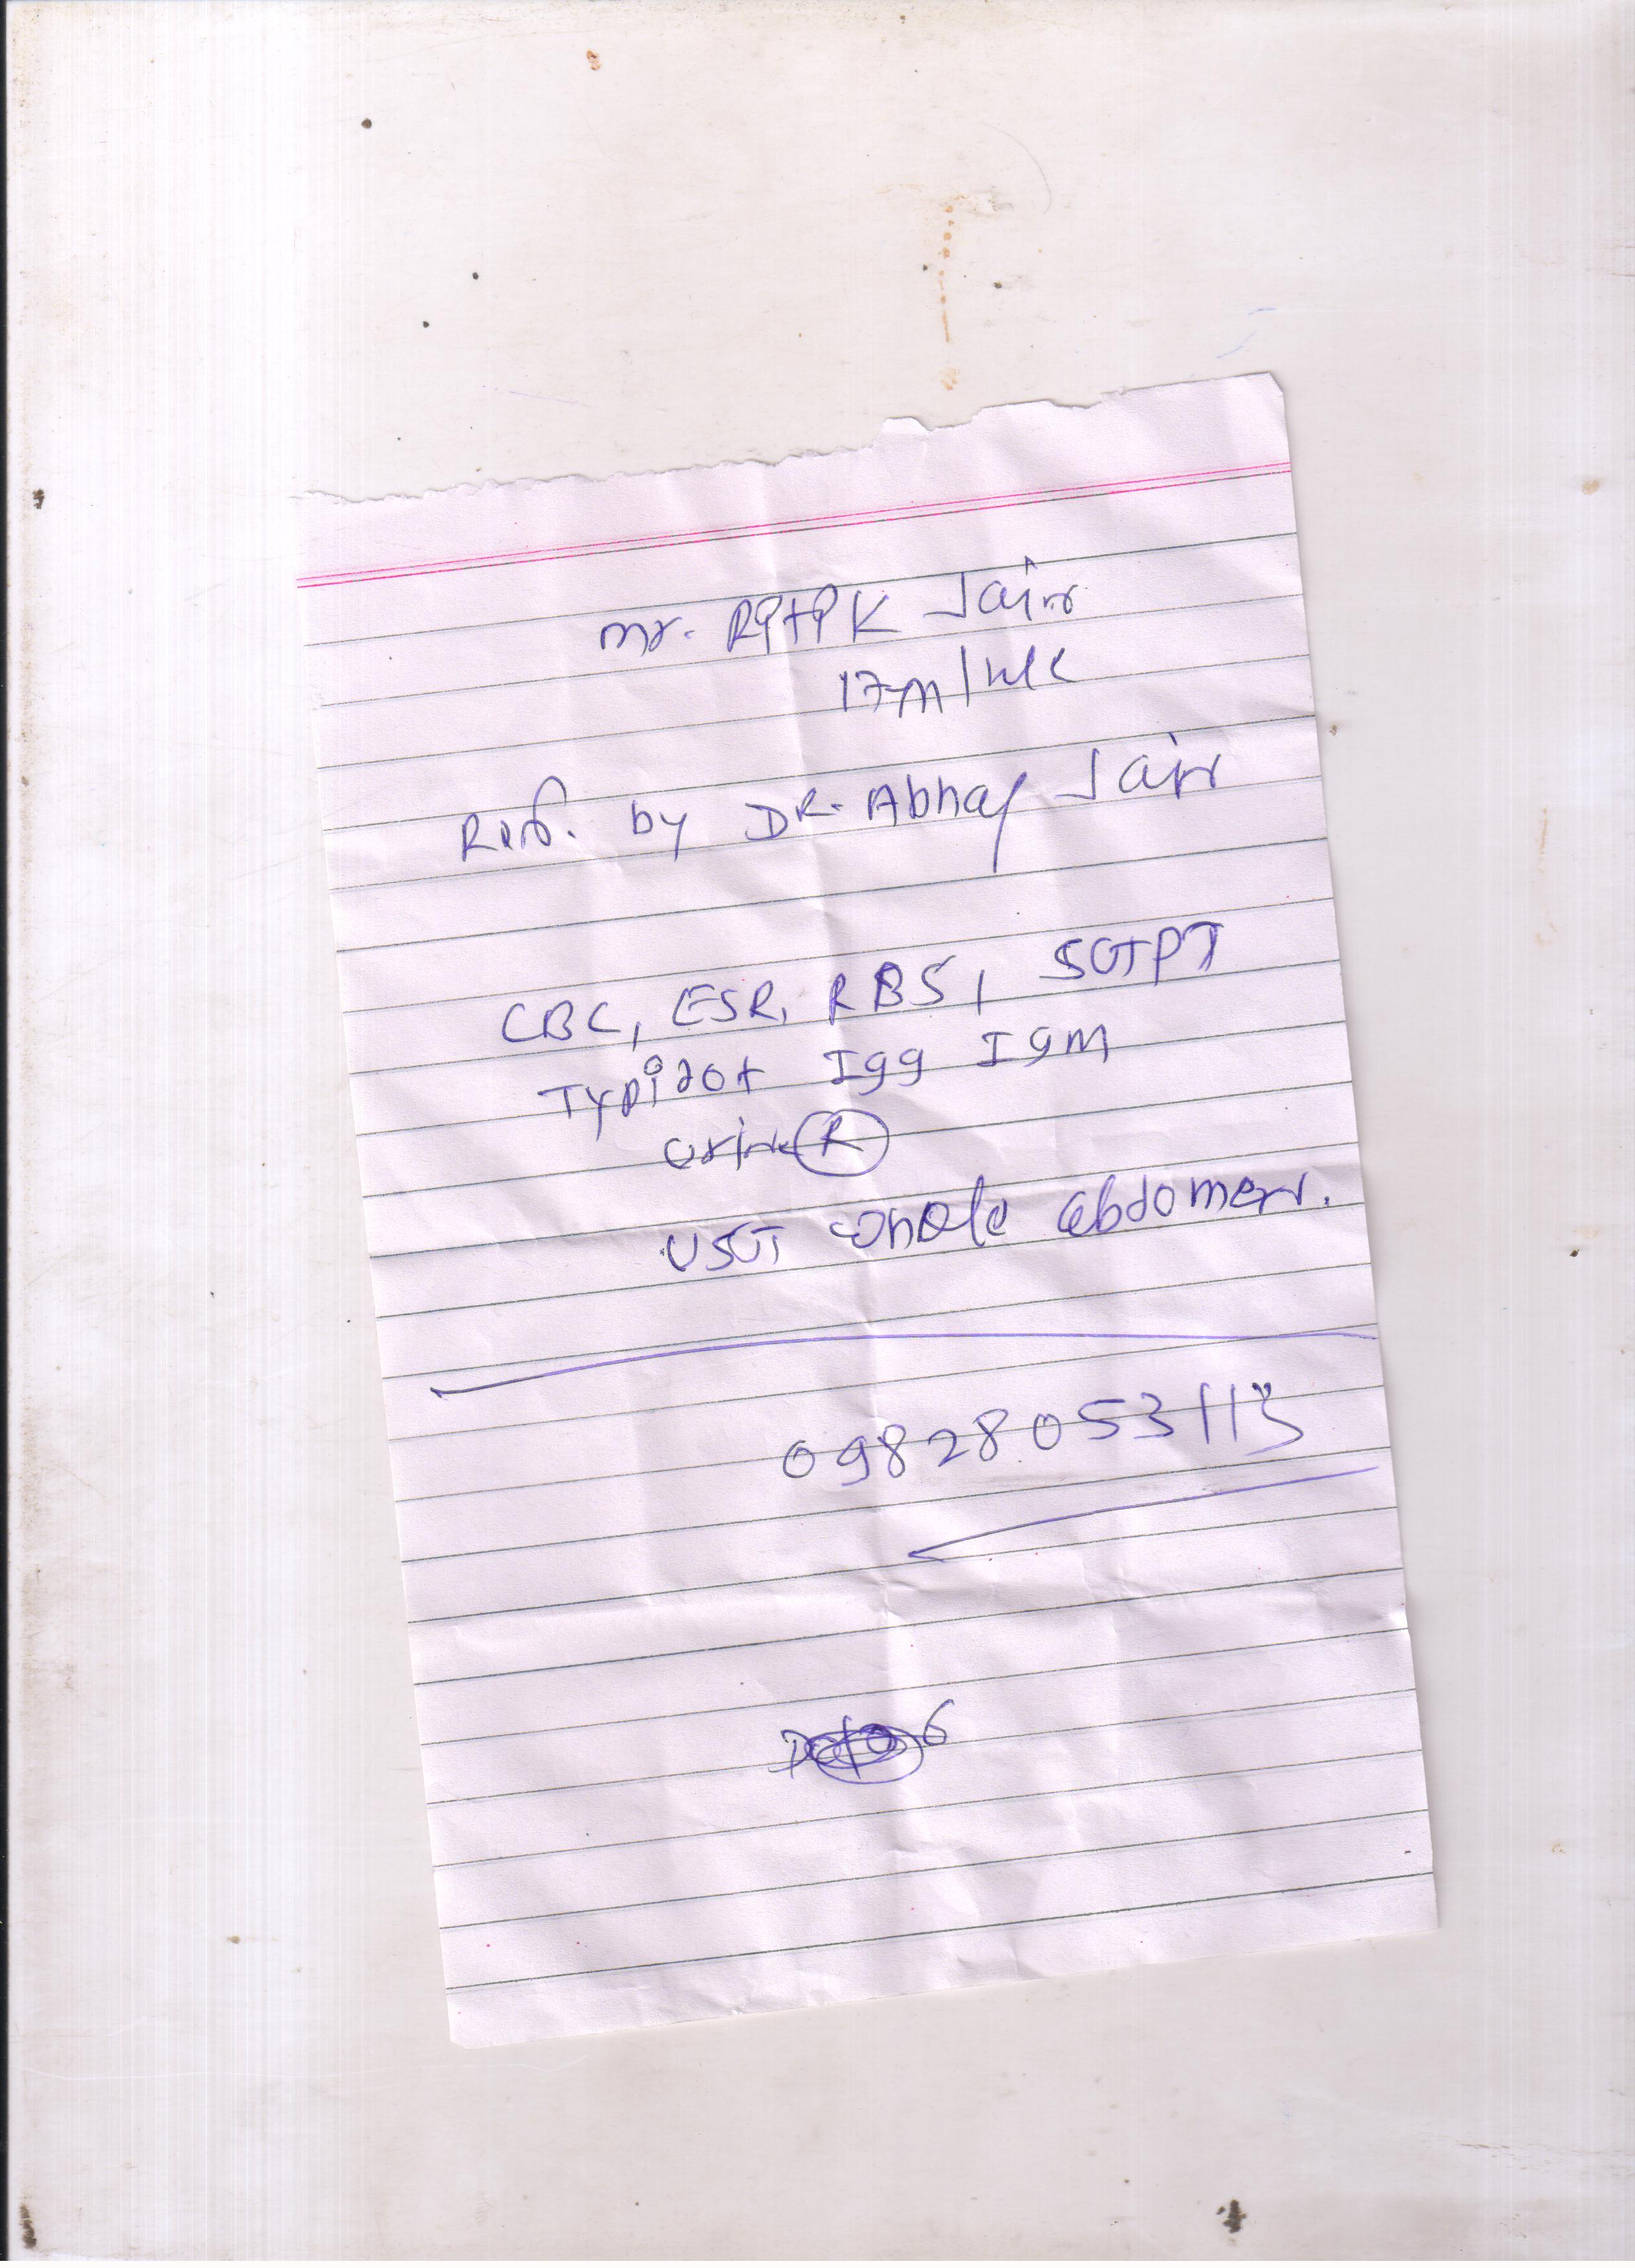 mr. RPHPK Jain
17m/
Ref. by DR. Abhay Jain
CBC, ESR, RBS, SGPT
Typidot Igg IgM
urine R
USG whole abdomen.
09828053113